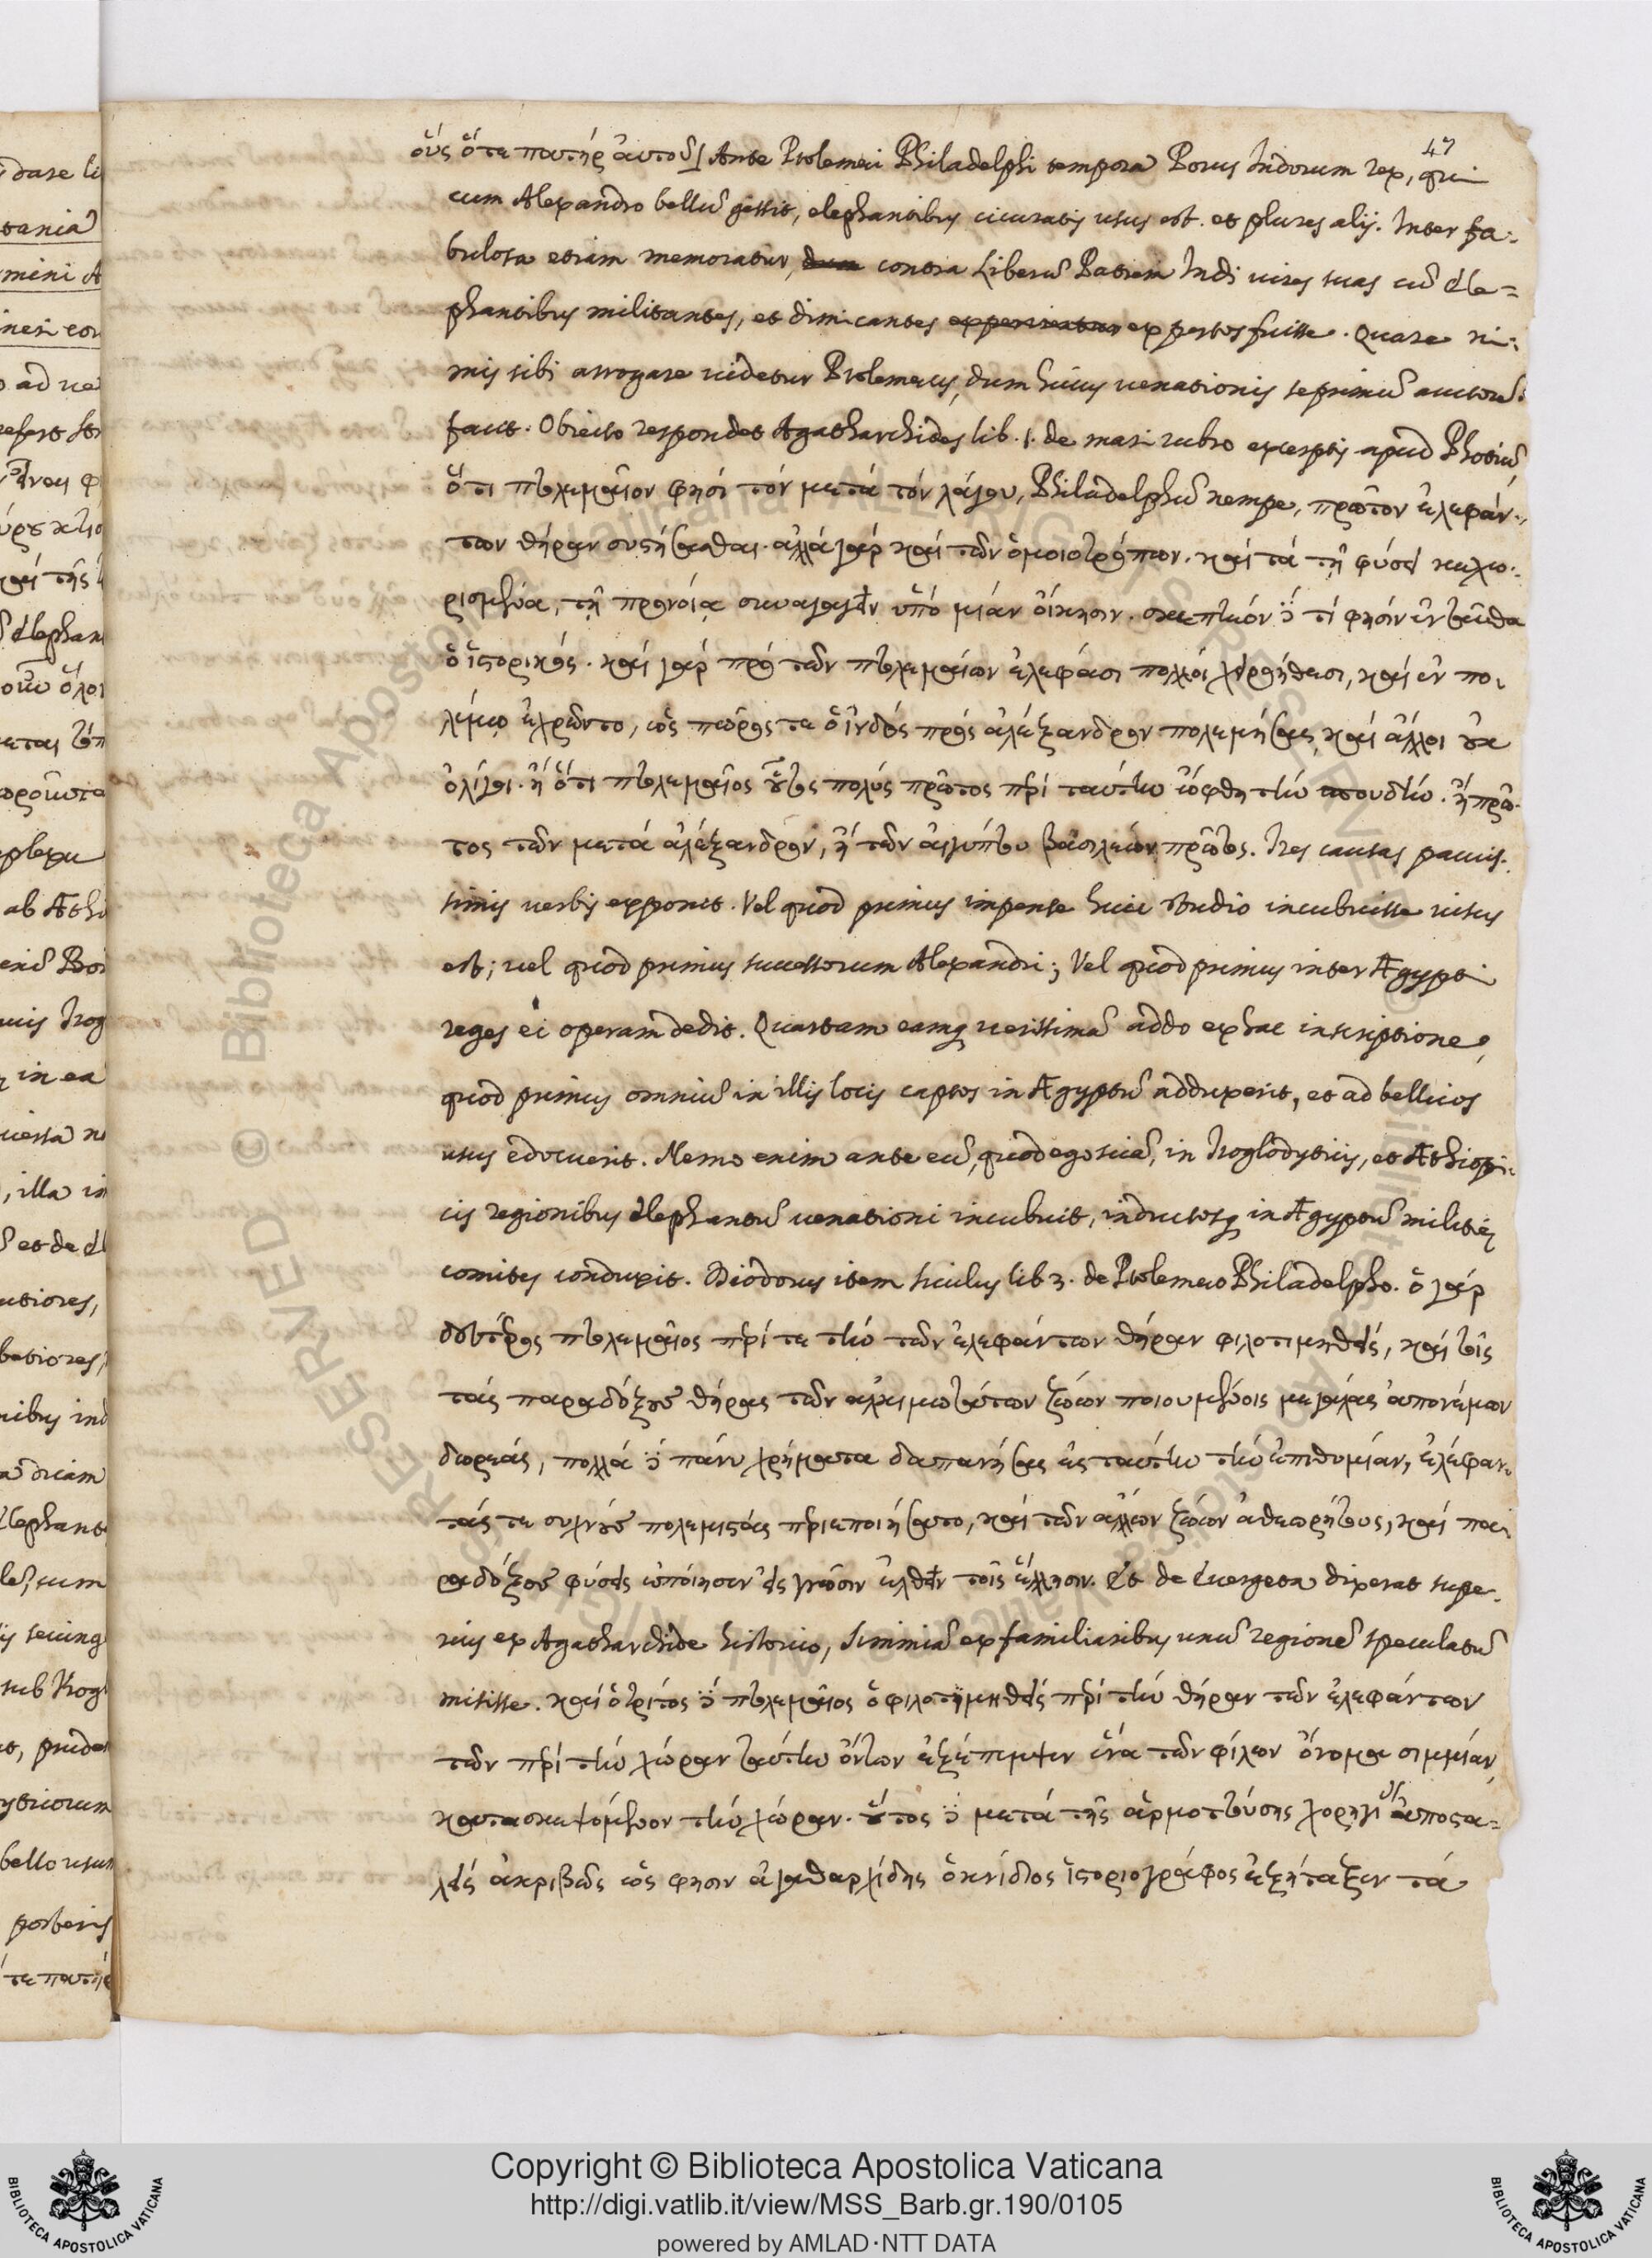 47
οὕς ὅτε πατήρ ἀυτοῦ] Ante Ptolemæi Philadelphi tempora Porus Indorum rex, qui
cum Alexandro bellũ gessit, elephantibus cicuratis usus est. et plures alij. Inter fa-
bulosa etiam memoratur, contra Liberũ Patrem Indi vires suas cũ ele=
phantibus militantes, et dimicantes experirentur expertos fuisse. Quare ni-
mis sibi arrogare videtur Ptolemæus, dum huius venationis se primũ auctorẽ
facit. Obiecto respondet Agatharchides lib. 1. de mari rubro excerptis apud Photiũ
ὅτι πτολεμαῖον φησί τόν μετά τόν λάγου, Philadelphũ nempe, πρῶτον ἐλεφάν-
των θήραν συστήσασθαι. ἀλλά γάρ καί τῶν ὁμοιοτρόπων. καί τά τῇ φύσει κεχω-
ρισμένα, τῇ προνοίᾳ συναγαγεῖν ὑπό μίαν οἴκησιν. σκεπτέον δέ τί φησίν ἐνταῦθα
ὁ ἱστορικός. καί γάρ πρό τῶν πτολεμαίων ἐλέφασι πολλοί χειροήθεσι, καί ἐν πο-
λέμῳ ἐχρῶντο, ὡς πῶρος τε ὁ ἰνδός πρός ἀλέξανδρον πολεμήσας, καί ἄλλοι οὐκ
ὀλίγοι. ἤ ὅτι πτολεμαῖος οὗτος πολύς πρῶτος περί ταύτην ὤφθη τήν σπουδήν. ἤ πρῶ-
τος τῶν μετά ἀλέξανδρον, ἤ τῶν αἰγύπτου βασιλέων πρῶτος. Tres causas paucis-
simis verbis exponit. Vel quod primus impense huic studio incubuisse visus
est; vel quod primus successorum Alexandri; Vel quod primus inter Ægypti
reges ei operam dedit. Quartam eamq; verissimã addo ex hac inscriptione,
quod primus omniũ in illis locis captos in Ægyptũ adduxerit, et ad bellicos
usus edocuerit. Nemo enim ante eũ, quod ego sciã, in Troglodyticis, et Æthiopi-
cis regionibus elephantũ venationi incubuit, inductosq; in Ægyptũ militiæ
comites conduxit. Diodorus item Siculus lib 3. de Ptolemæo Philadelpho. ὁ γάρ
δεύτερος πτολεμαῖος περί τε τήν τῶν ἐλεφάντων θήραν φιλοτιμηθείς, καί τοῖς
τάς παραδόξους θήρας τῶν ἀλκιμωτάτων ζώων ποιουμένοις μεγάλας ἀπονέμων
δωρεάς, πολλά δέ πάνυ χρήματα δαπανήσας εἰς ταύτην τήν ἐπιθυμίαν, ἐλέφαν-
τάς τε συχνούς πολεμιστάς περιεποιήσατο, καί τῶν ἄλλων ζώων ἀθεωρήτους, καί πα-
ραδόξους φύσεις ἐποίησεν εἰς γνῶσιν ἐλθεῖν τοῖς ἕλλησιν. Et de Euergeta dixerat supe-
rius ex Agatharchide historico, Simmiã ex familiaribus unũ regionẽ speculatũ
misisse. καί ὁ τρίτος δέ πτολεμαῖος ὁ φιλοτιμηθείς περί τήν θήραν τῶν ἐλεφάντων
τῶν περί τήν χώραν ταύτην ὄντων ἐξέπεμψεν ἕνα τῶν φίλων ὄνομα σιμμίαν,
κατασκεψόμενον τήν χώραν. οὗτος δέ μετά τῆς ἁρμοττούσης χορηγίας ἀποστα=
λείς ἀκριβῶς ὥς φησιν ἀγαθαρχίδης ὁ κνίδιος ἱστοριογράφος ἐξήταξεν τά
Copyright © Biblioteca Apostolica Vaticana
http://digi.vatlib.it/view/MSS_Barb.gr.190/0105
powered by AMLAD·NTT DATA